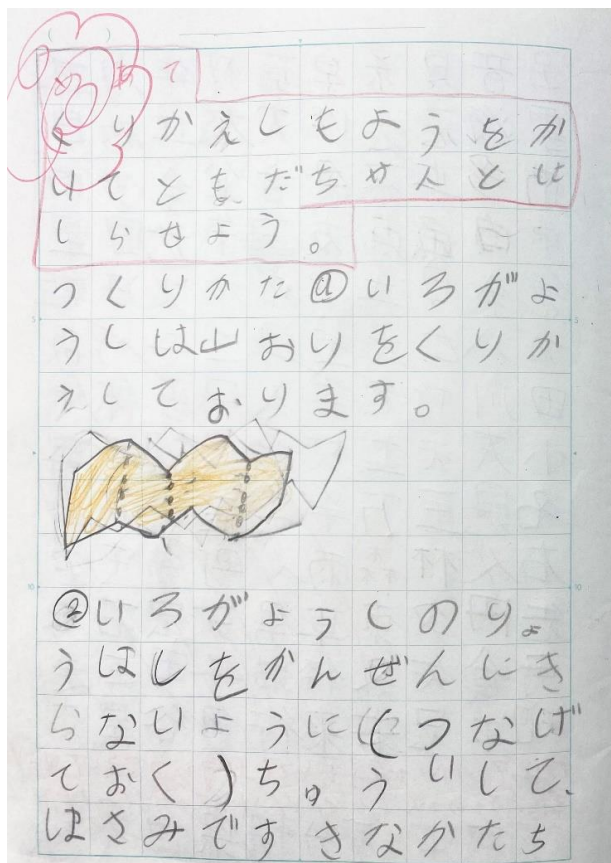 めあて
くりかえしもようをか
いてともだちや人とに
しらせよう。
つくりかた①いろがよ
うしは山おりをくりか
えしております。
②いろがようしのりょ
うはしをかんぜんにき
らないように(つなげ
ておく)ちゅういして、
はさみですきなかたち